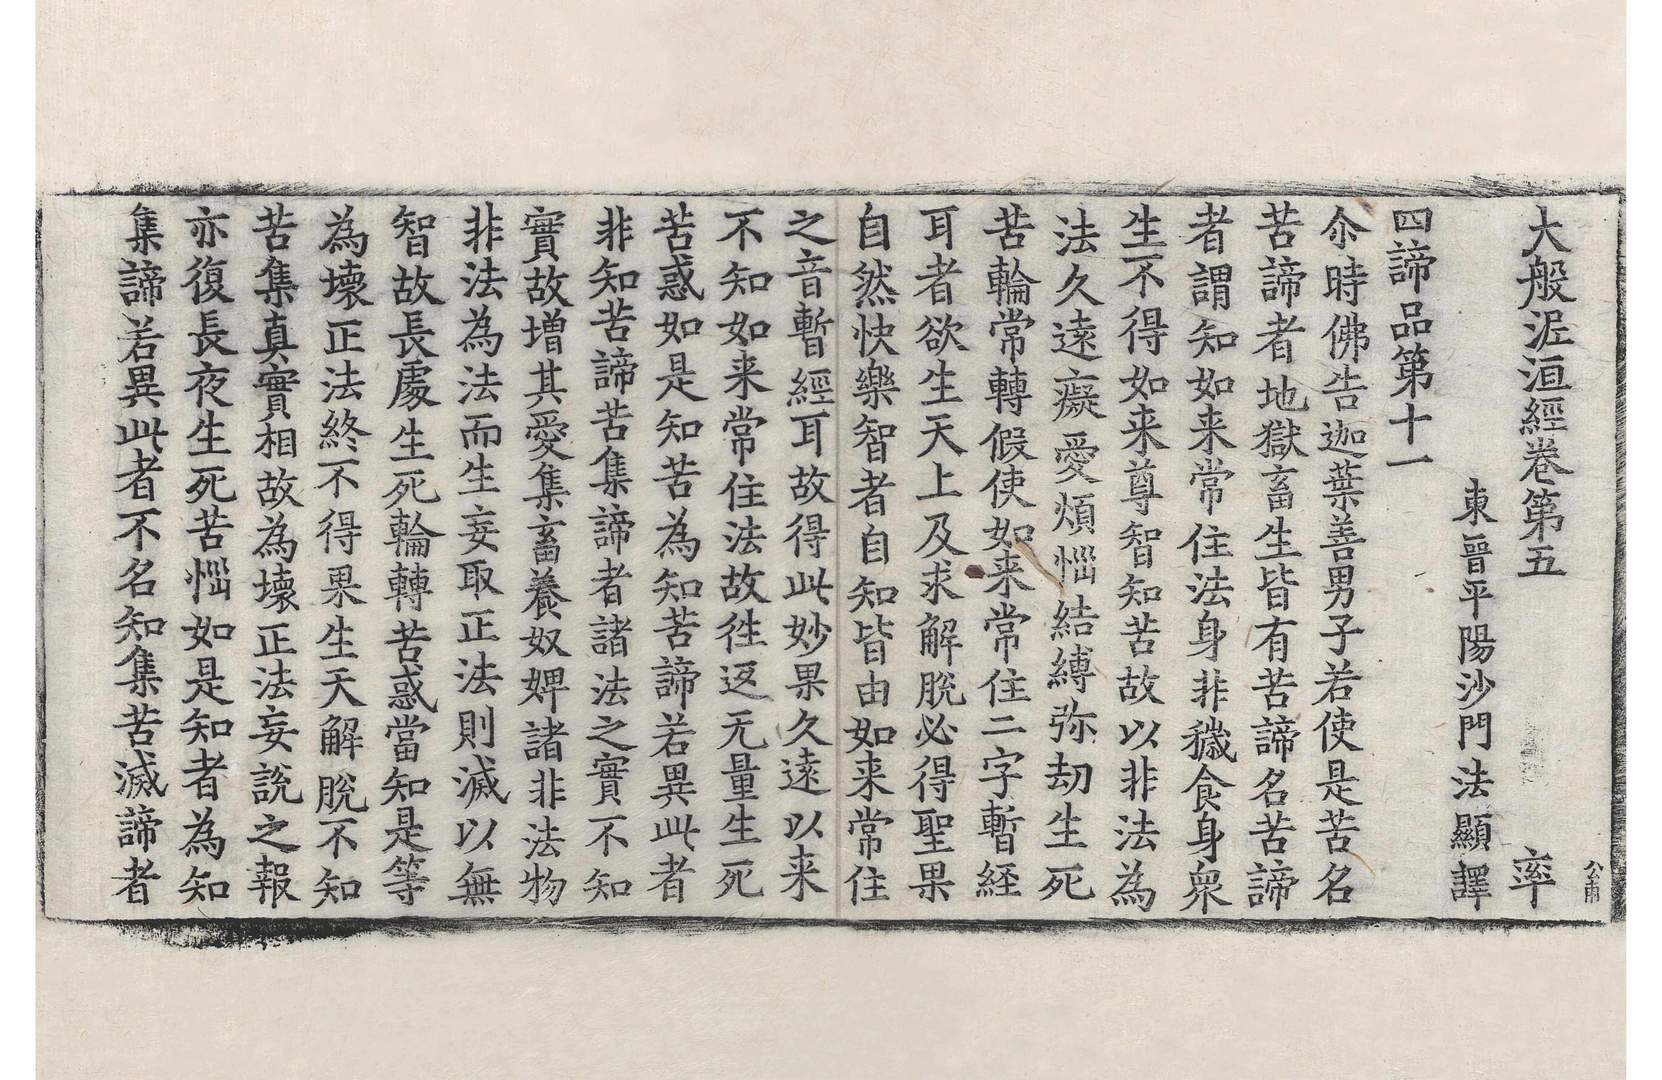 大般泥洹經卷第五 率
公甫
東晉平陽沙門法顯譯
四諦品第十一
尒時佛告迦葉善男子若使是苦名
苦諦者地獄畜生皆有苦諦名苦諦
者謂知如来常住法身非穢食身衆
生不得如来尊智知苦故以非法為
法久遠癡愛煩惱結縛弥劫生死
苦輪常轉假使如来常住二字暫経
耳者欲生天上及求解脫必得聖果
自然快樂智者自知皆由如来常住
之音暫經耳故得此妙果久遠以来
不知如来常住法故徃返无量生死
苦惑如是知苦為知苦諦若異此者
非知苦諦苦集諦者諸法之實不知
實故增其愛集畜養奴婢諸非法物
非法為法而生妄取正法則滅以無
智故長處生死輪轉苦惑當知是等
為壞正法終不得果生天解脫不知
苦集真實相故為壞正法妄說之報
亦復長夜生死苦惱如是知者為知
集諦若異此者不名知集苦滅諦者